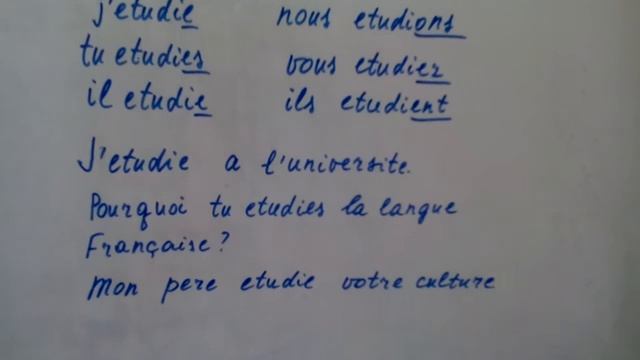 j'etudie nous etudions
tu etudies vous etudier
il etudie ils etudient
J'etudie a l'universite.
Pourquoi tu etudies la langue
Française?
Mon pere etudie votre culture